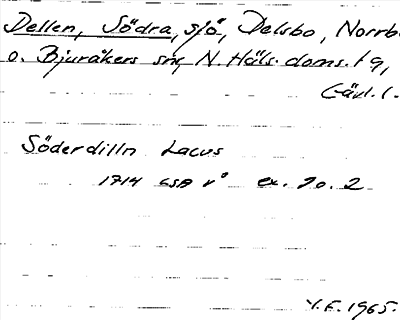 Dellen, Södra, sjö, Delsbo, Norrb.
o. Bjuråkers snr N. Häls. doms. hg,
Gävl. l.
Söderdilln Lacus
1714 LSA v° ex. 1 o. 2
Y.F. 1965.